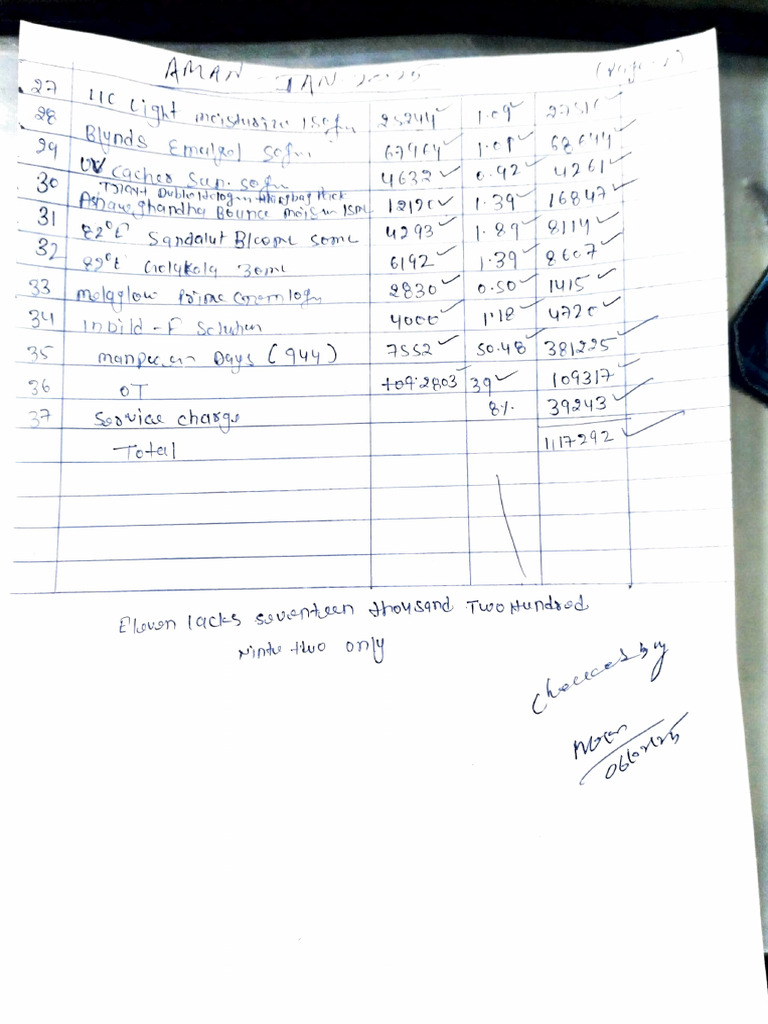 AMAN - JAN - 2025 (Page-2)
27 UC Light moisturize 15gm 25244 1.09 27516
28 Blynds Emulgel 50gm 1.01 68644
29 UV Cacher Sun. 50gm 4632 0.92 4261
30 Ashawghandha Bounce Mois 15ml 12120 1.39 16847
31 82°E Sandalut Bloome 50ml 4293 1.89 8114
32 82°E 30ml 6192 1.39 8607
33 melaglow Prime 2830 0.50 1415
34 Inbild-F Solution 4000 1.18 4720
35 Days (944) 7552 50.48 381225
36 OT 2803 39 109317
37 Service charge 8% 39243
Total 1117292
Eleven lacks seventeen thousand Two Hundred
Ninty two only